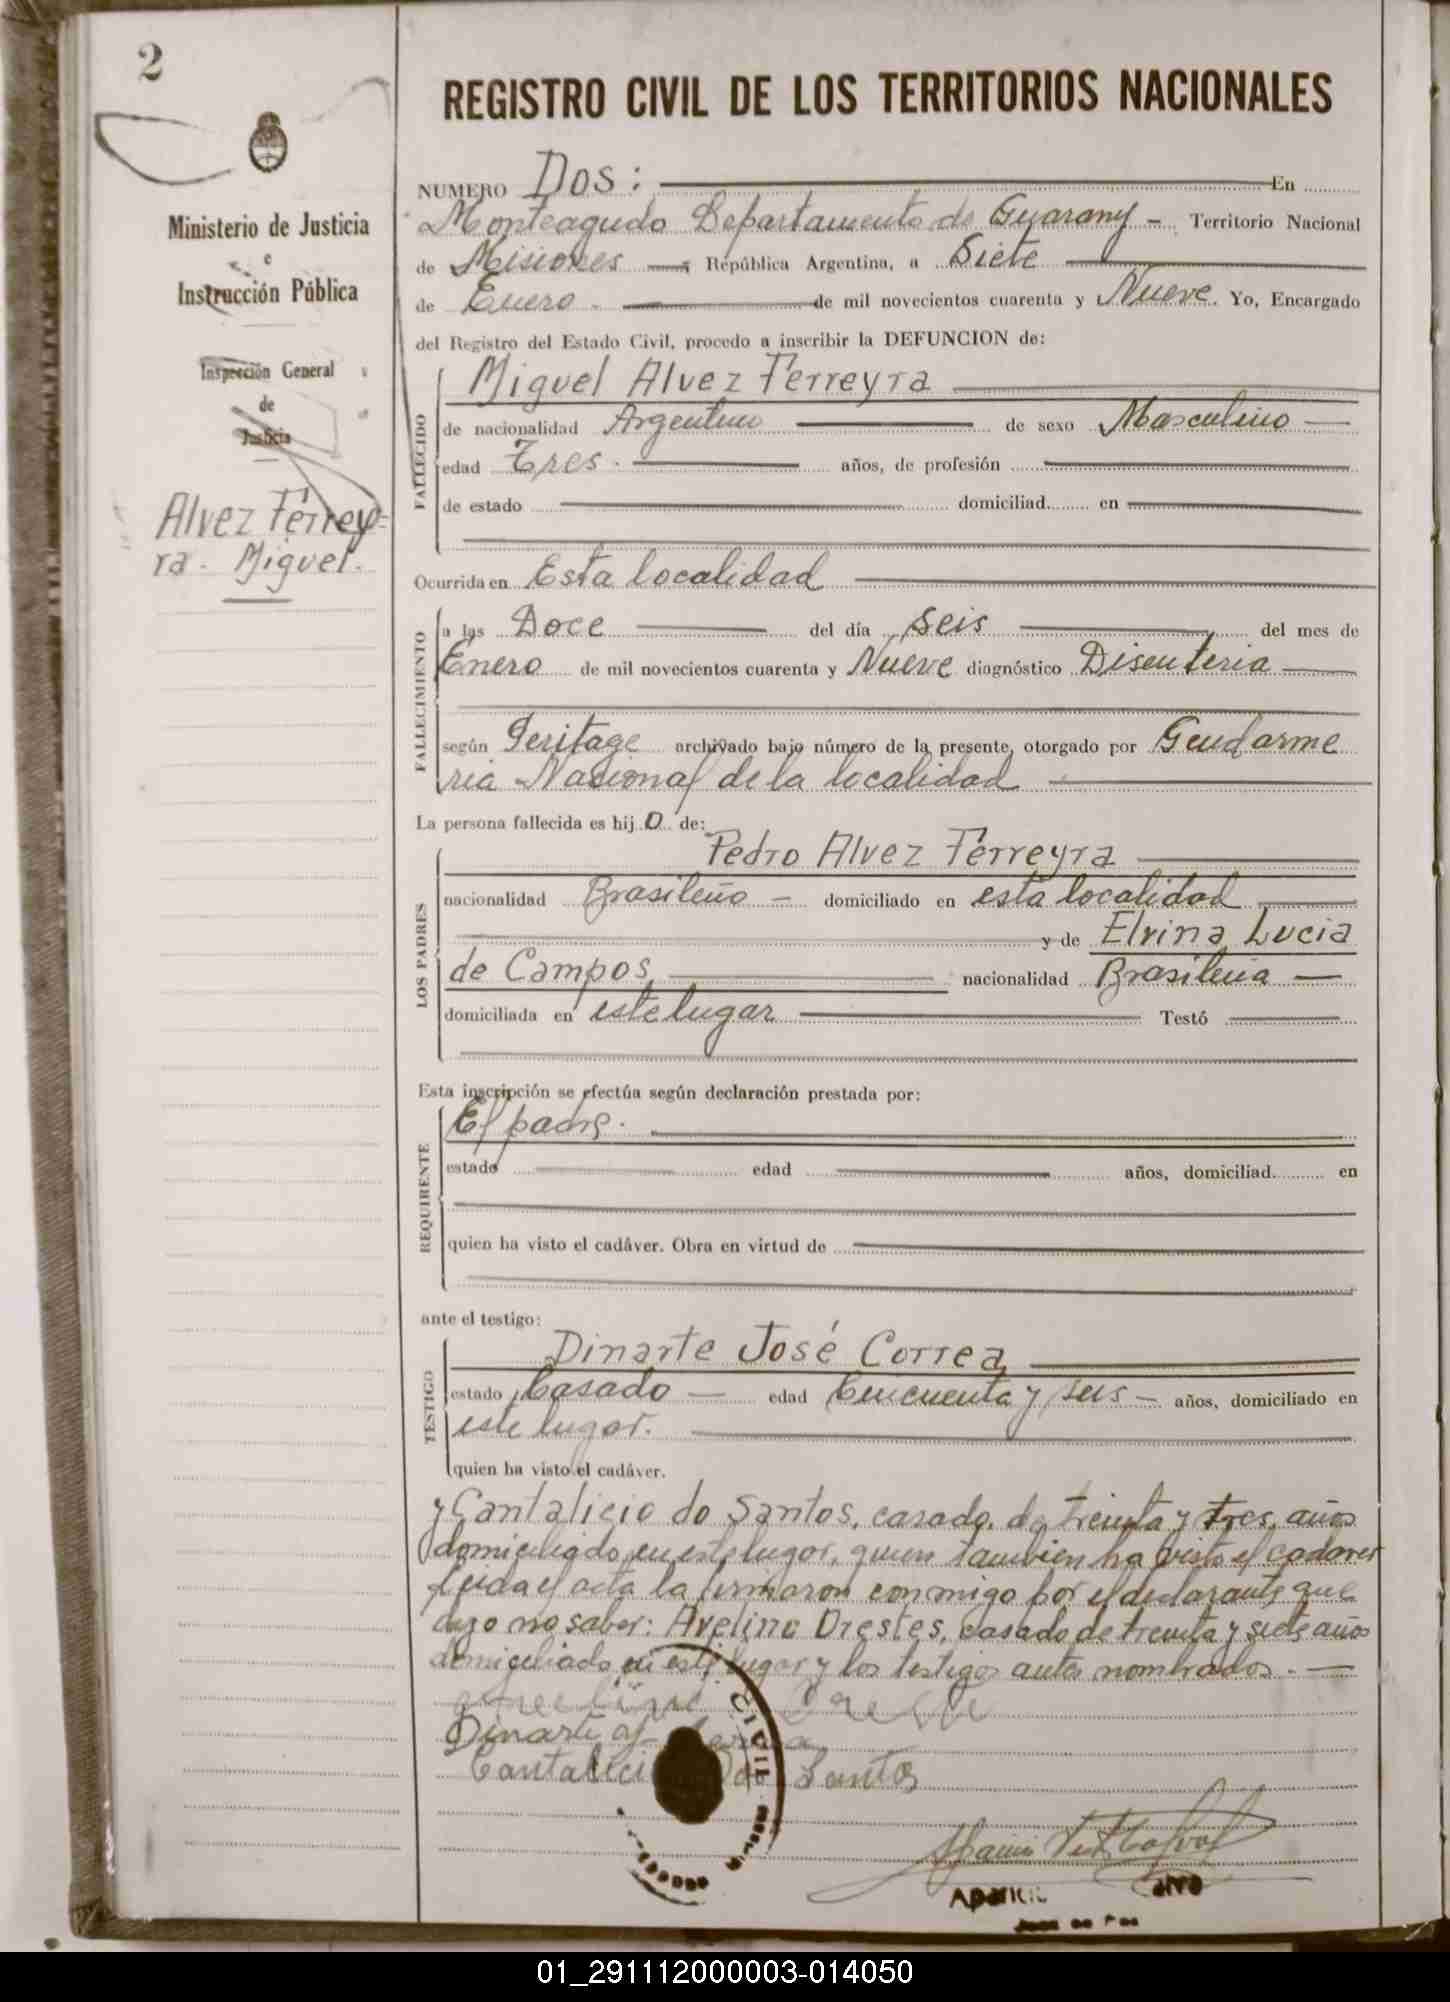 2
REGISTRO CIVIL DE LOS TERRITORIOS NACIONALES
Ministerio de Justicia
e
Instrucción Pública
Inspección General
de
Justicia
Alvez Ferrey=
ra. Miguel.
NUMERO Dos: En
Monteagudo Departamento de Guarany - Territorio Nacional
de Misiones República Argentina, a Siete
de Enero. de mil novecientos cuarenta y Nueve. Yo, Encargado
del Registro del Estado Civil, procedo a inscribir la DEFUNCION de:
FALLECIDO
Miguel Alvez Ferreyra
de nacionalidad Argentino de sexo Masculino
edad Tres. años, de profesión
de estado domiciliad en
Ocurrida en Esta localidad
FALLECIMIENTO
a las Doce del día Seis del mes de
Enero de mil novecientos cuarenta y Nueve diagnóstico Disenteria
según Peritage archivado bajo número de la presente, otorgado por Gendarme
ria Nacional de la localidad
La persona fallecida es hijo de:
LOS PADRES
Pedro Alvez Ferreyra
nacionalidad Brasileño - domiciliado en esta localidad
y de Elvina Lucia
de Campos nacionalidad Brasileña
domiciliada en este lugar Testó
Esta inscripción se efectúa según declaración prestada por:
REQUIRENTE
El padre.
estado edad años, domiciliad en
quien ha visto el cadáver. Obra en virtud de
ante el testigo:
TESTIGO
Dinarte José Correa
estado Casado - edad Cincuenta y seis - años, domiciliado en
este lugar.
quien ha visto el cadáver.
y Cantalicio do Santos, casado, de treinta y tres, años
domiciliado en este lugar, quien tambien ha visto el cadaver
Leida el acta la firmaron conmigo por el declarante que
dijo no saber: Avelino Orestes, casado de treinta y siete años
domiciliado en este lugar y los testigos antes nombrados. -
Dinarte
Cantalicio do Santos
CIVIL
Aparicio
Juez de Paz
01_291112000003-014050